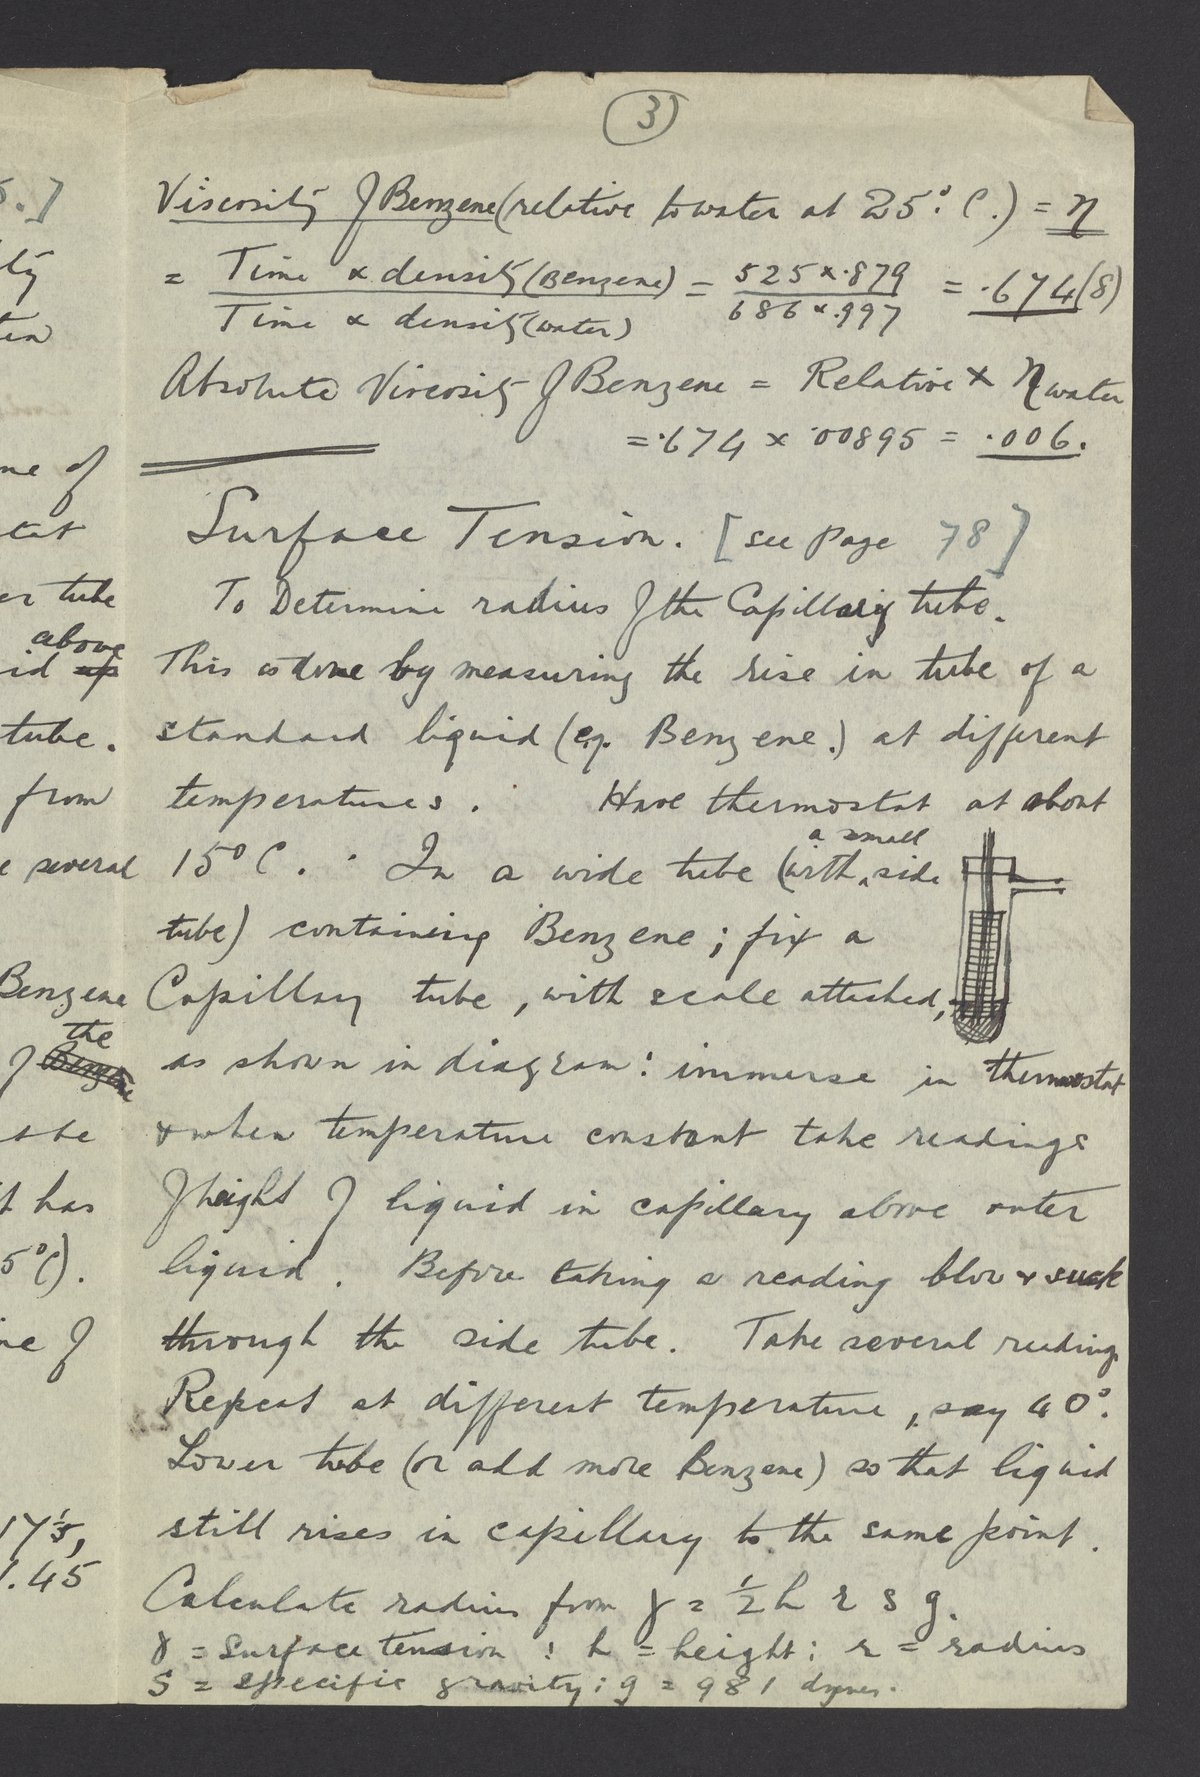 3
Viscosity of Benzene (relative to water at 25°. C.) = η
= Time × density (Benzene) / Time × density (water) = 525 × .879 / 686 × .997 = .674(8)
Absolute Viscosity of Benzene = Relative × η water
= .674 × .00895 = .006.
Surface Tension. [see page 78]
To Determine radius of the Capillary tube.
This is done by measuring the rise in tube of a
standard liquid (eg. Benzene.) at different
temperatures. Have thermostat at about
15° C. In a wide tube (with a small side
tube) containing Benzene; fix a
Capillary tube, with scale attached,
as shown in diagram: immerse in thermostat
& when temperature constant take readings
of height of liquid in capillary above outer
liquid. Before taking a reading blow & suck
through the side tube. Take several readings
Repeat at different temperature, say 40°.
Lower tube (or add more Benzene) so that liquid
still rises in capillary to the same point.
Calculate radius from γ = ½ h r s g.
γ = Surface tension : h = height : r = radius
S = specific gravity : g = 981 dynes.
5.]
ity
me of
er tube
above
id up
tube.
from
e several
Benzene
the
of Benzene
the
t has
5°C).
ne of
17.5,
1.45